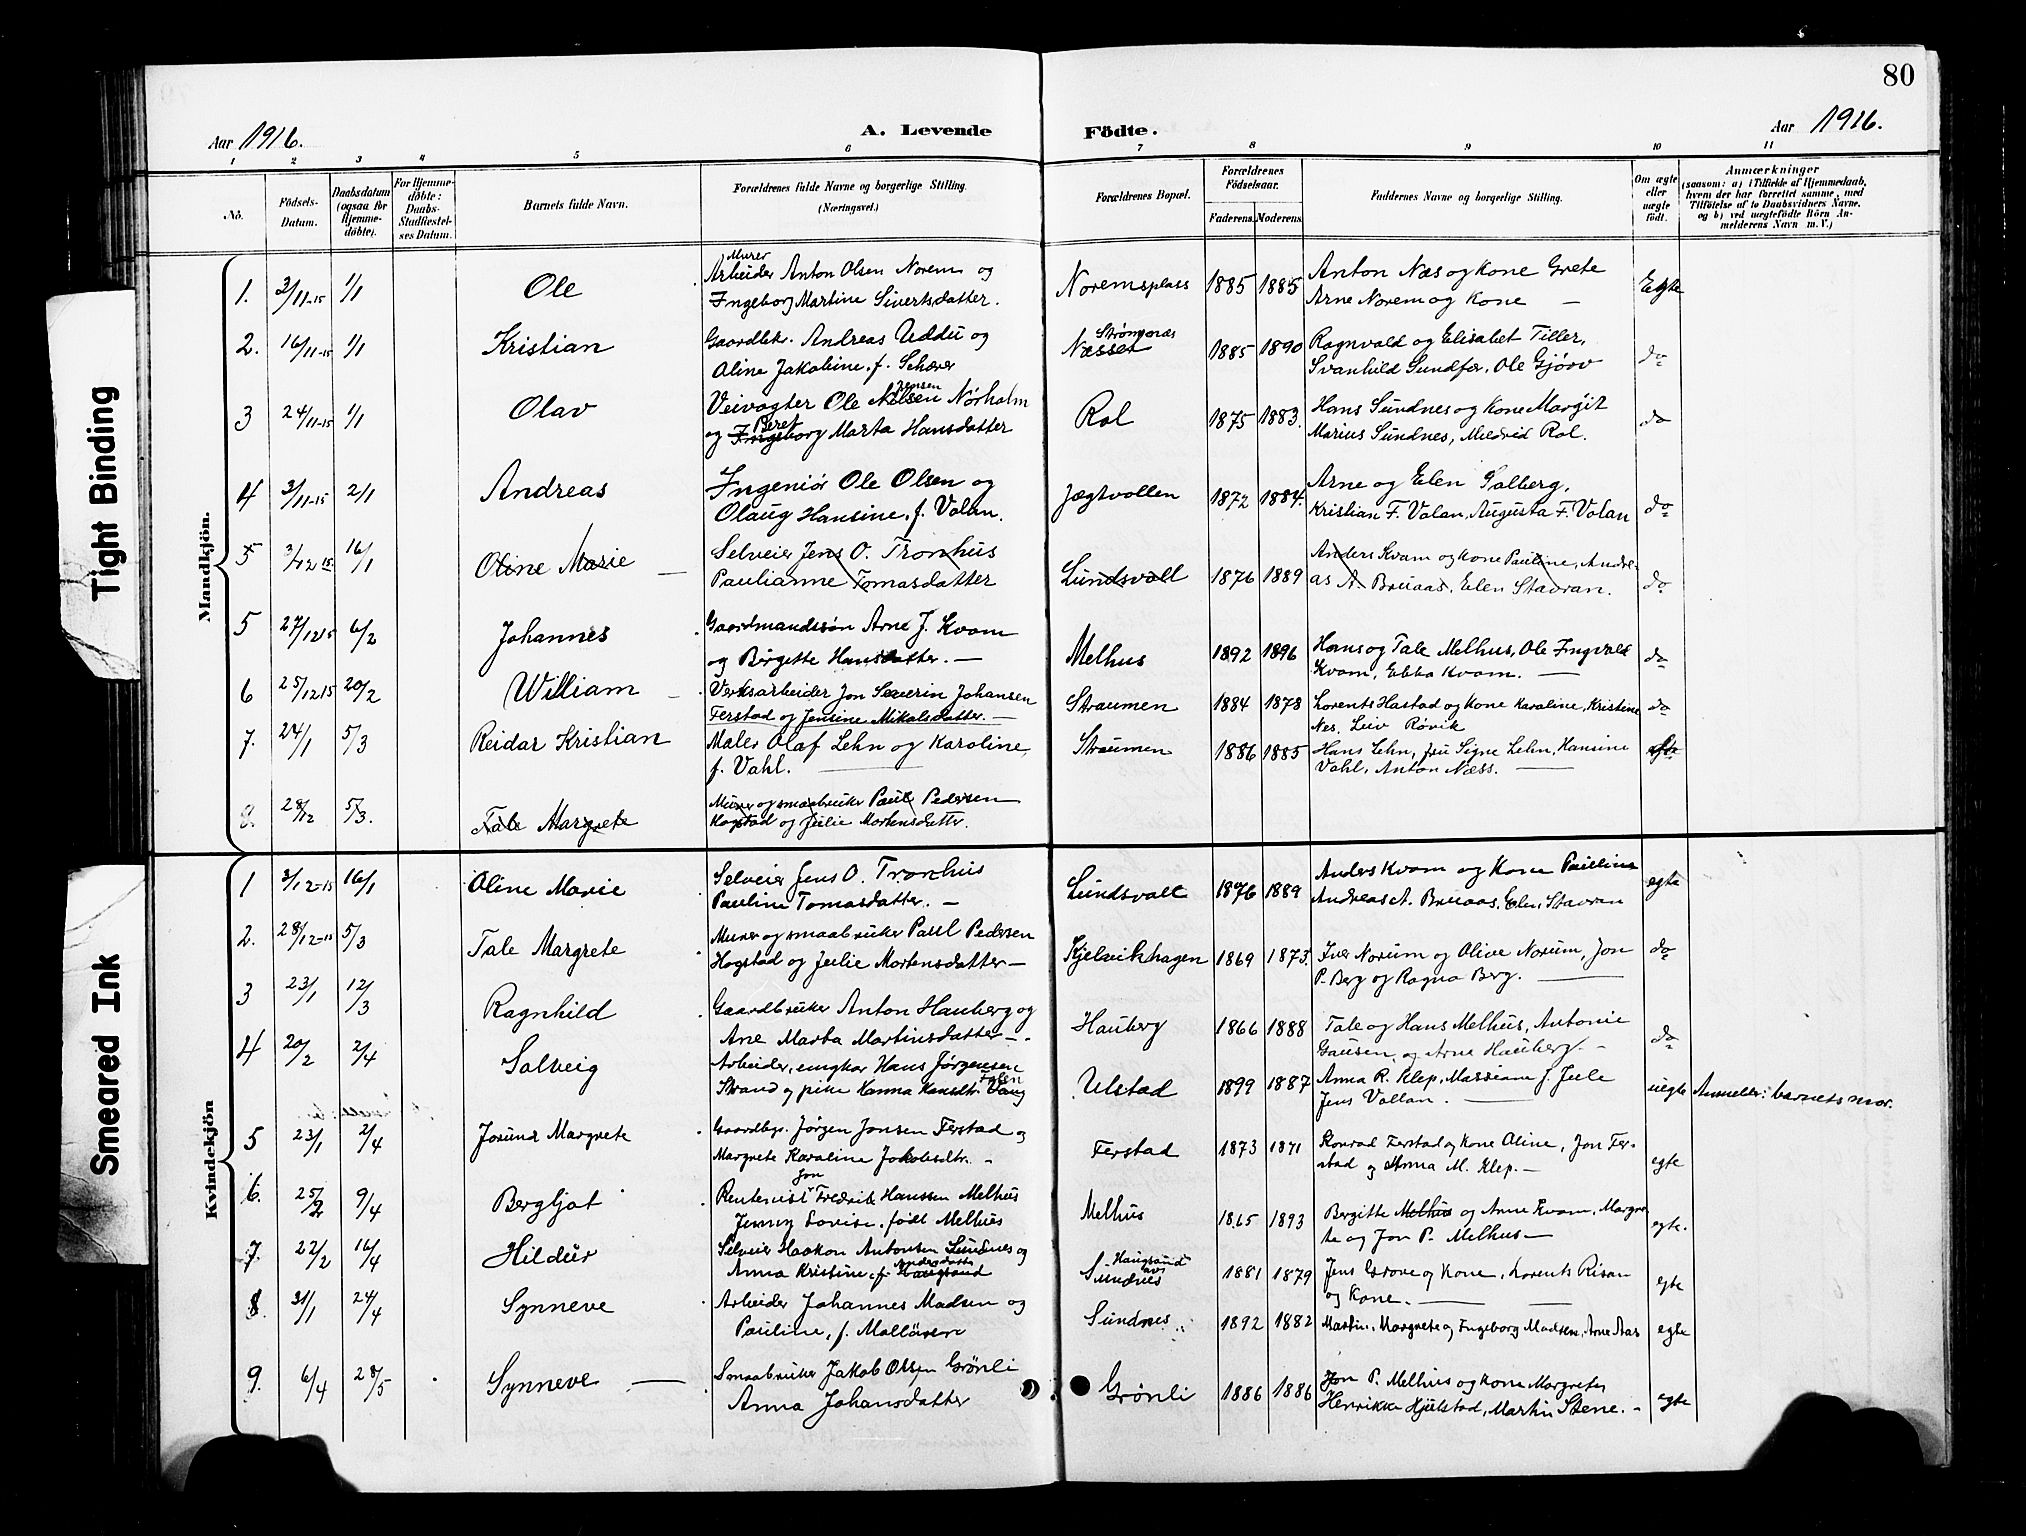 80
Aar 1916.
A. Levende Födte.
Aar 1916.
1 2 3 4 5 6 7 8 9 10 11
No.
Födsels-Datum.
Daabsdatum (ogsaa for Hjemme-döbte).
For Hjemme-döbte: Daabs-Stadfæstel-ses Datum.
Barnets fulde Navn.
Forældrenes fulde Navne og borgerlige Stilling. (Næringsvei.)
Forældrenes Bopæl.
Forældrenes Födselsaar.
Faderens. Moderens.
Faddernes Navne og borgerlige Stilling.
Om ægte eller uægte födt.
Anmærkninger
(saasom: a) i Tilfælde af Hjemmedaab, hvem der har forrettet samme, med Tilföielse af to Daabsvidners Navne, og b) ved uægtefödte Börn Anmelderens Navn m. V.)
Tight Binding
Smeared Ink
Mandkjön.
1. 3/11-15 1/1 Ole Murer Arbeider Anton Olsen Norem og Noremsplass 1885 1885 Anton Næs og Kone Grete Egte
Ingeborg Martine Sivertsdatter. Arne Norem og Kone —
2. 16/11-15 1/1 Kristian Gaardbr. Andreas Uddu og Strømnæs Næsset 1885 1890 Ragnvald og Elisabet Tiller, do
Aline Jakobine, f. Schæver Svanhild Sundfær, Ole Gjørv
3 24/11-15 1/1 Olav Veivogter Ole Nilsen Jensen Nørholm Rol 1875 1883. Hans Sundnes og Kone Margit do
og Ingeborg Beret Marta Hansdatter Marius Sundnes, Mildrid Rol.
4 3/11-15 2/1 Andreas Ingeniør Ole Olsen og Jægtvollen 1872 1884. Arne og Elen Salberg, do
Olaug Hansine, f. Volan. Kristian F. Volan, Augusta F. Volan
5 3/12 15 16/1 Oline Marie — Selveier Jens O. Tronhus Lundsvall 1876 1889 Anders Kvam og Kone Pauline, Andre- do
Paulianne Tomasdatter as A. Bruaas, Elen Stavran.
5 27/12 15 6/2 Johannes Gaardmandssøn Arne J. Kvam Melhus 1892 1896 Hans og Tale Melhus, Ole Ingvald do
og Birgitte Hansdatter. — Kvam, Ebba Kvam. —
6 25/12 15 20/2 William — Verksarbeider Jon Severin Johansen Straumen 1884 1878 Lorents Hastad og Kone Karoline, Kristine do
Ferstad og Jensine Mikalsdatter. — Nes, Leiv Røvik
7. 24/1 5/3 Reidar Kristian Maler Olaf Lehn og Karoline, Straumen 1886 1885 Hans Lehn, fru Signe Lehn, Hansine
f. Vahl. — Vahl, Anton Næss. —
8. 28/12 5/3. Tale Margrete Murer og smaabruker Paul Pedersen
Hogstad og Julie Mortensdatter.
Kvindekjön
1 3/12-15 16/1 Oline Marie Selveier Jens O. Tronhus Lundsvall 1876 1889 Anders Kvam og Kone Pauline egte
Pauline Tomasdatter. — Andreas A. Bruaas, Elen Stavran
2. 28/12-15 5/3 Tale Margrete Murer og smaabruker Paul Pedersen Kjelvikhagen 1869 1873. Iver Norum og Olive Norum, Jon do
Hogstad og Julie Mortensdatter — P. Berg og Ragna Berg. —
3 23/1 12/3 Ragnhild Gaardbruker Anton Hauberg og Hauberg 1866 1888 Tale og Hans Melhus, Antonie do
Ane Marta Martinsdatter —. Gausen, og Arne Hauberg. —
4 20/2 2/4 Solveig Arbeider, ungkar Hans Jørgensen Ulstad 1899 1887 Anna R. Klep, Massiane J. Jule uegte Anmelder: barnets mor.
Strand og pike Hanna Hansdtr. Vang Jens Vollan. —
5 23/1 2/4 Jorunn Margrete Gaardbgr. Jørgen Jonsen Ferstad og Ferstad 1873 1871 Konrad Ferstad og Kone Oline, Jon Fer- egte
Margrete Karoline Jakobsdtr. — stad og Anna M. Klep. —
6. 25/2 9/4 Bergljot Rentenist Jon Fredrik Hanssen Melhus Melhus 1865 1893 Bergitte Melhus og Arne Kvam, Margre- egte.
Jenny Lovise, født Melhus te og Jon P. Melhus —
7. 22/2 16/4 Hildur Selveier Haakon Antonsen Sundnes og Haugsand av Sundnes 1881 1879 Jens Grove og Kone, Lorents Risan egte
Anna Kristine, f. Haugsand Andersdatter og Kone. —
8. 31/1 24/4 Synneve Arbeider Johannes Madsen og Sundnes 1892 1882 Martin, Margrete og Ingeborg Madsen, Arne Aas egte
Pauline, f. Malläuren
9. 6/4 28/5 Synneve — Smaabruker Jakob Olsen Grönli Grönli 1886 1886 Jon P. Melhus og Kone Margrete, egte
Anna Johansdatter Henrikka Hjulstad, Martin Stene. —